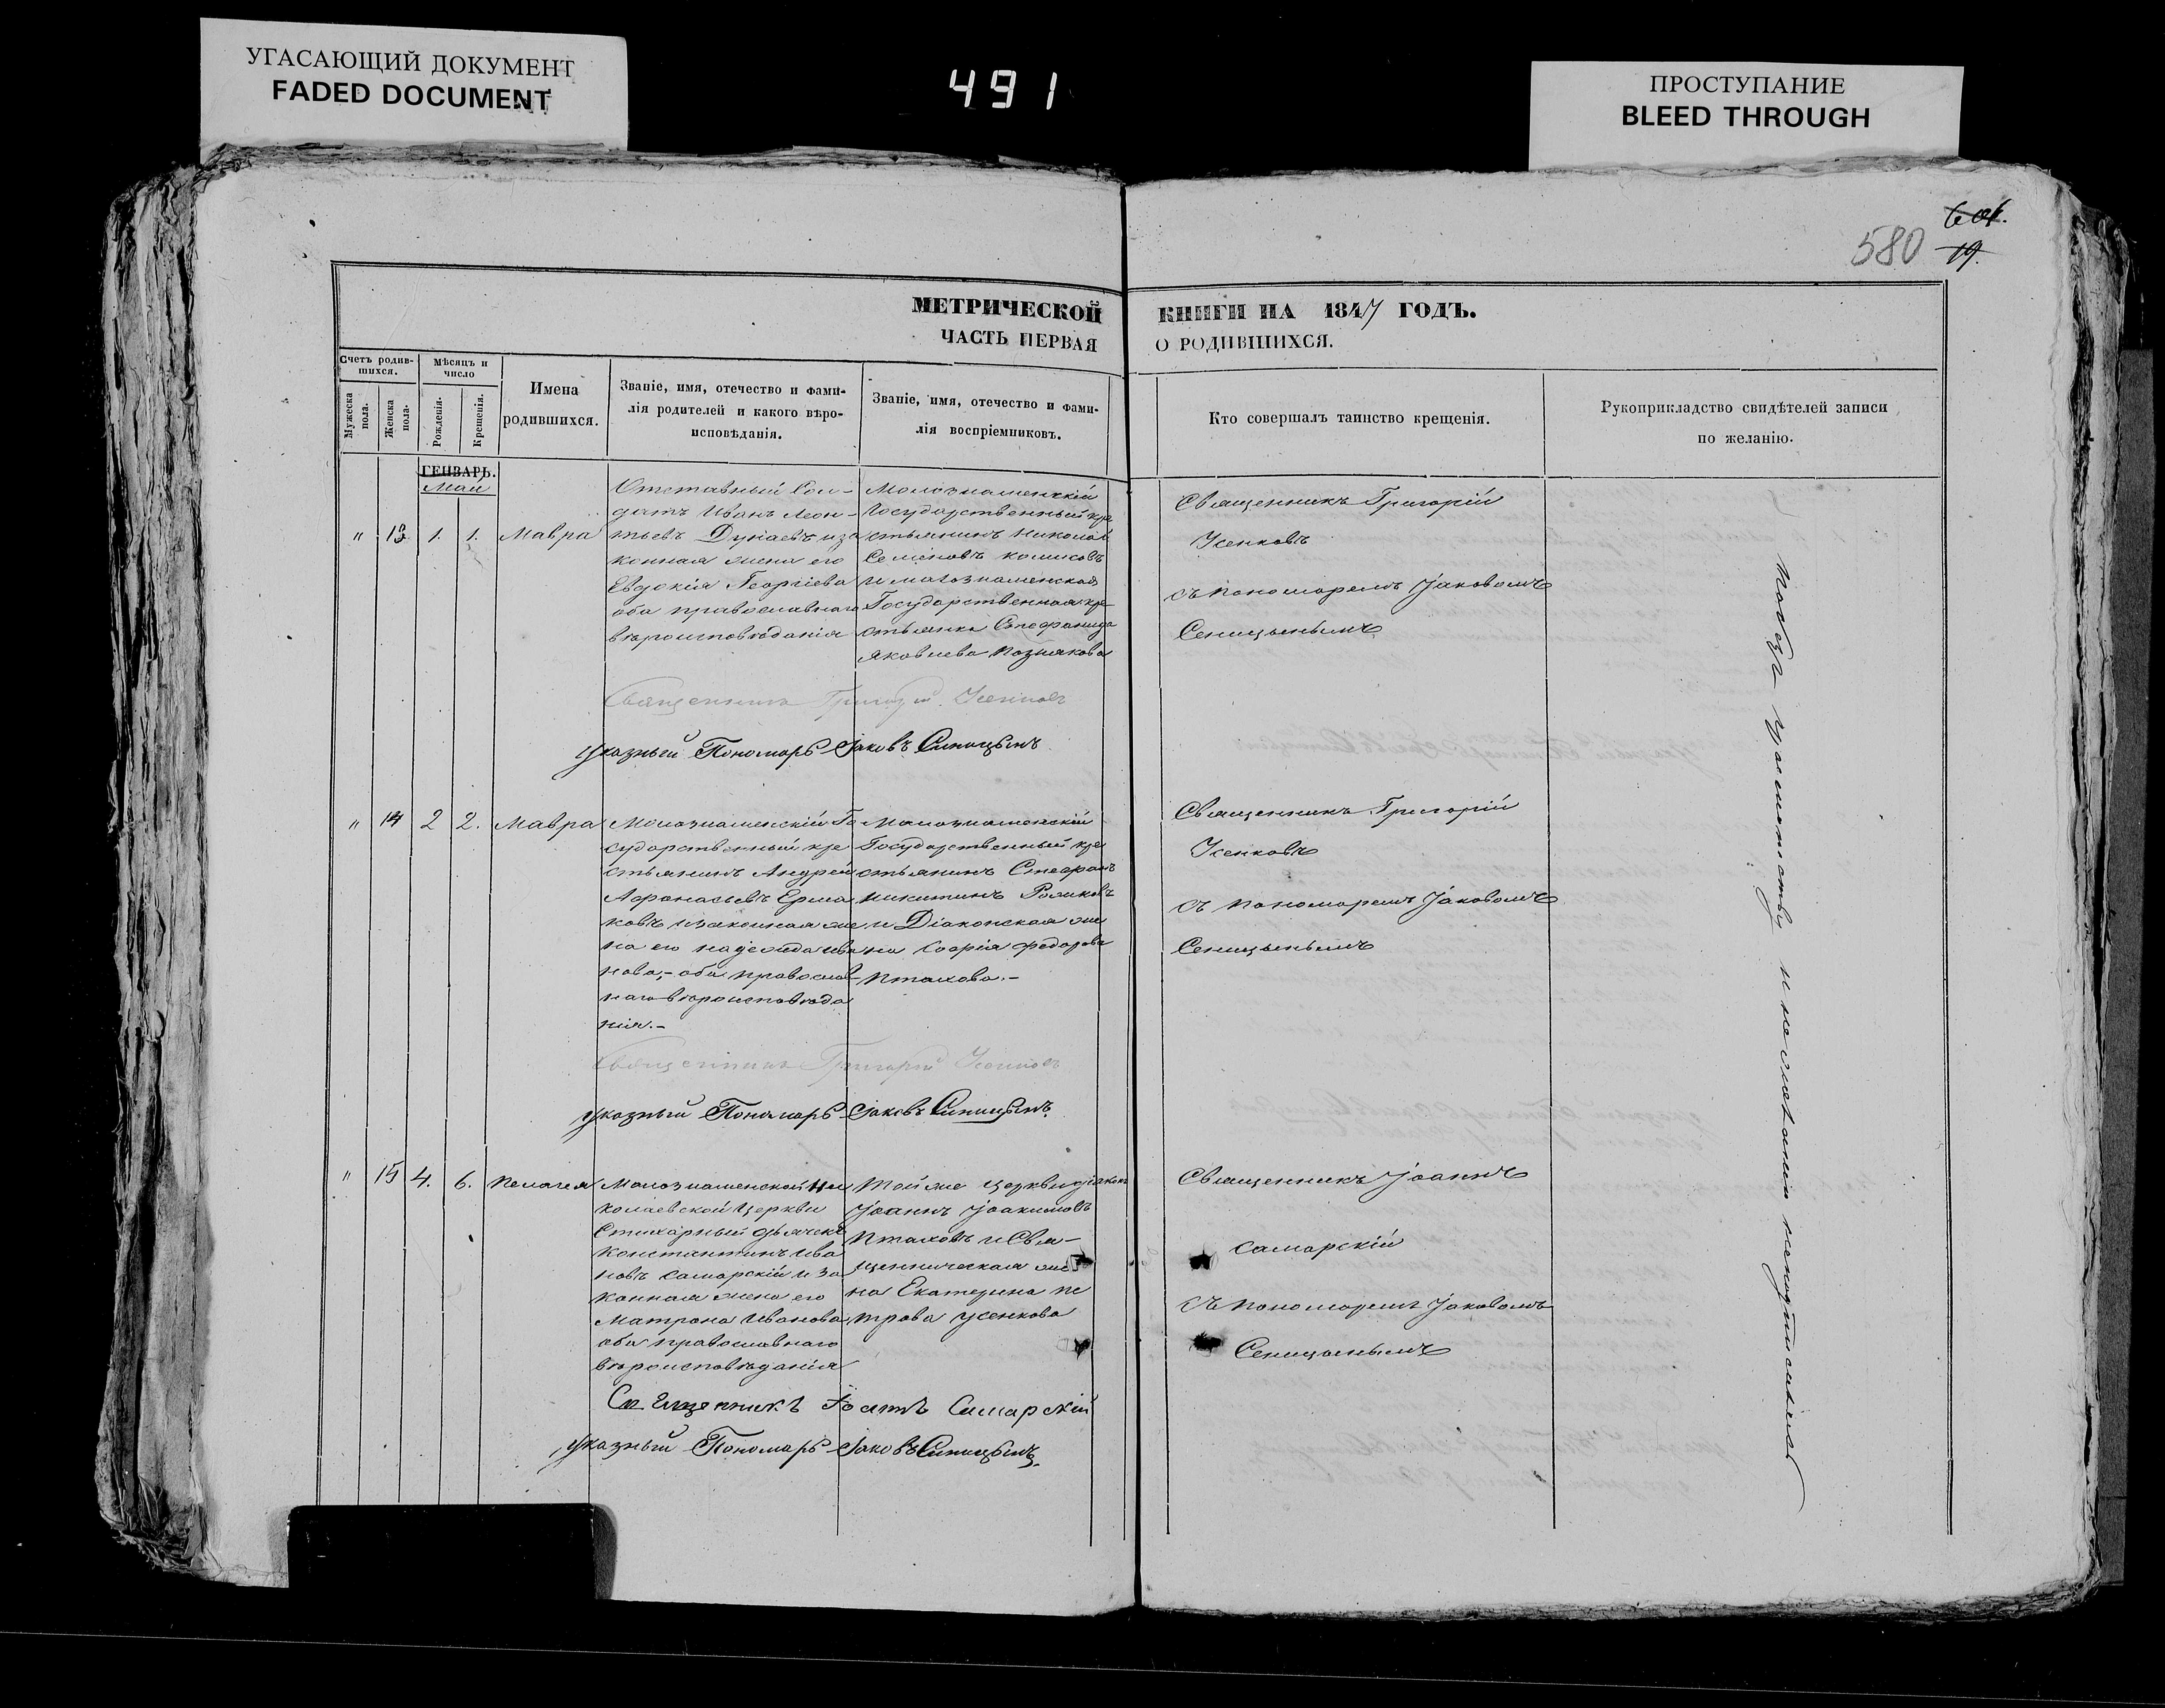 УГАСАЮЩИЙ ДОКУМЕНТ
FADED DOCUMENT
491
ПРОСТУПАНИЕ
BLEED THROUGH
580
19.
МЕТРИЧЕСКОЙ КНИГИ НА 1847 ГОДЪ.
ЧАСТЬ ПЕРВАЯ О РОДИВШИХСЯ.
Счетъ родив-
шихся.
Мужеска
пола.
Женска
пола.
Мѣсяцъ и
число
Рожденія.
Крещенія.
Имена
родившихся.
Званіе, имя, отечество и фами-
лія родителей и какого вѣро-
исповѣданія.
Званіе, имя, отечество и фами-
лія воспріемниковъ.
Кто совершалъ таинство крещенія.
Рукоприкладство свидѣтелей записи
по желанію.
ГЕНВАРЬ.
Маи
" 13 1. 1. Мавра
Отставный Сол-
датъ Иванъ Леон-
тьевъ Дунаевъ иза
конная жена его
Евдокія Георгіева
оба православнаго
вѣроисповѣданія
Малознаменскій
Государственный кре
стьянинъ Николай
Семеновъ
и малознаменская
Государственная кре
стьянка Стефанида
Яковлева Познякова
Священникъ Григорій
Усенковъ
съ пономаремъ Іаковомъ
Сеницынымъ
Священникъ Григорій Усенковъ
указный Пономарь Іаковъ Синицынъ
" 14 2 2. Мавра
Малознаменскій Го
сударственный кре
стьянинъ Андрей
Афанасьевъ Ерма
ковъ изаконная же
на его надежда ива
нова,- оба православ
наго вѣроисповѣда
нія.-
Малознаменскій
Государственный кре
стьянинъ Стефанъ
Никитинъ
и Діаконская же
на Софія федорова
Птахова.-
Священникъ Григорій
Усенковъ
съ пономаремъ Іаковомъ
Сеницынымъ
Священникъ Григорій Усенковъ
указный Пономарь Іаковъ Синицынъ
" 15 4. 6. Пелагея
Малознаменской Ни
колаевской Церкви
Стихарный дьячекъ
Константинъ ива
новъ Самарскій и за
конная жена его
Матрона Иванова
оба православнаго
вѣроисповѣданія
Той же церкви діаконъ
Іоаннъ Іоакимовъ
Птаховъ и Свя-
щенническая же
на Екатерина пе
трова усенкова
Священникъ Іоаннъ
Самарскій
съ пономаремъ Іаковомъ
Сеницынымъ
Священникъ Іоаннъ Самарскій
указный Пономарь Іаковъ Синицынъ